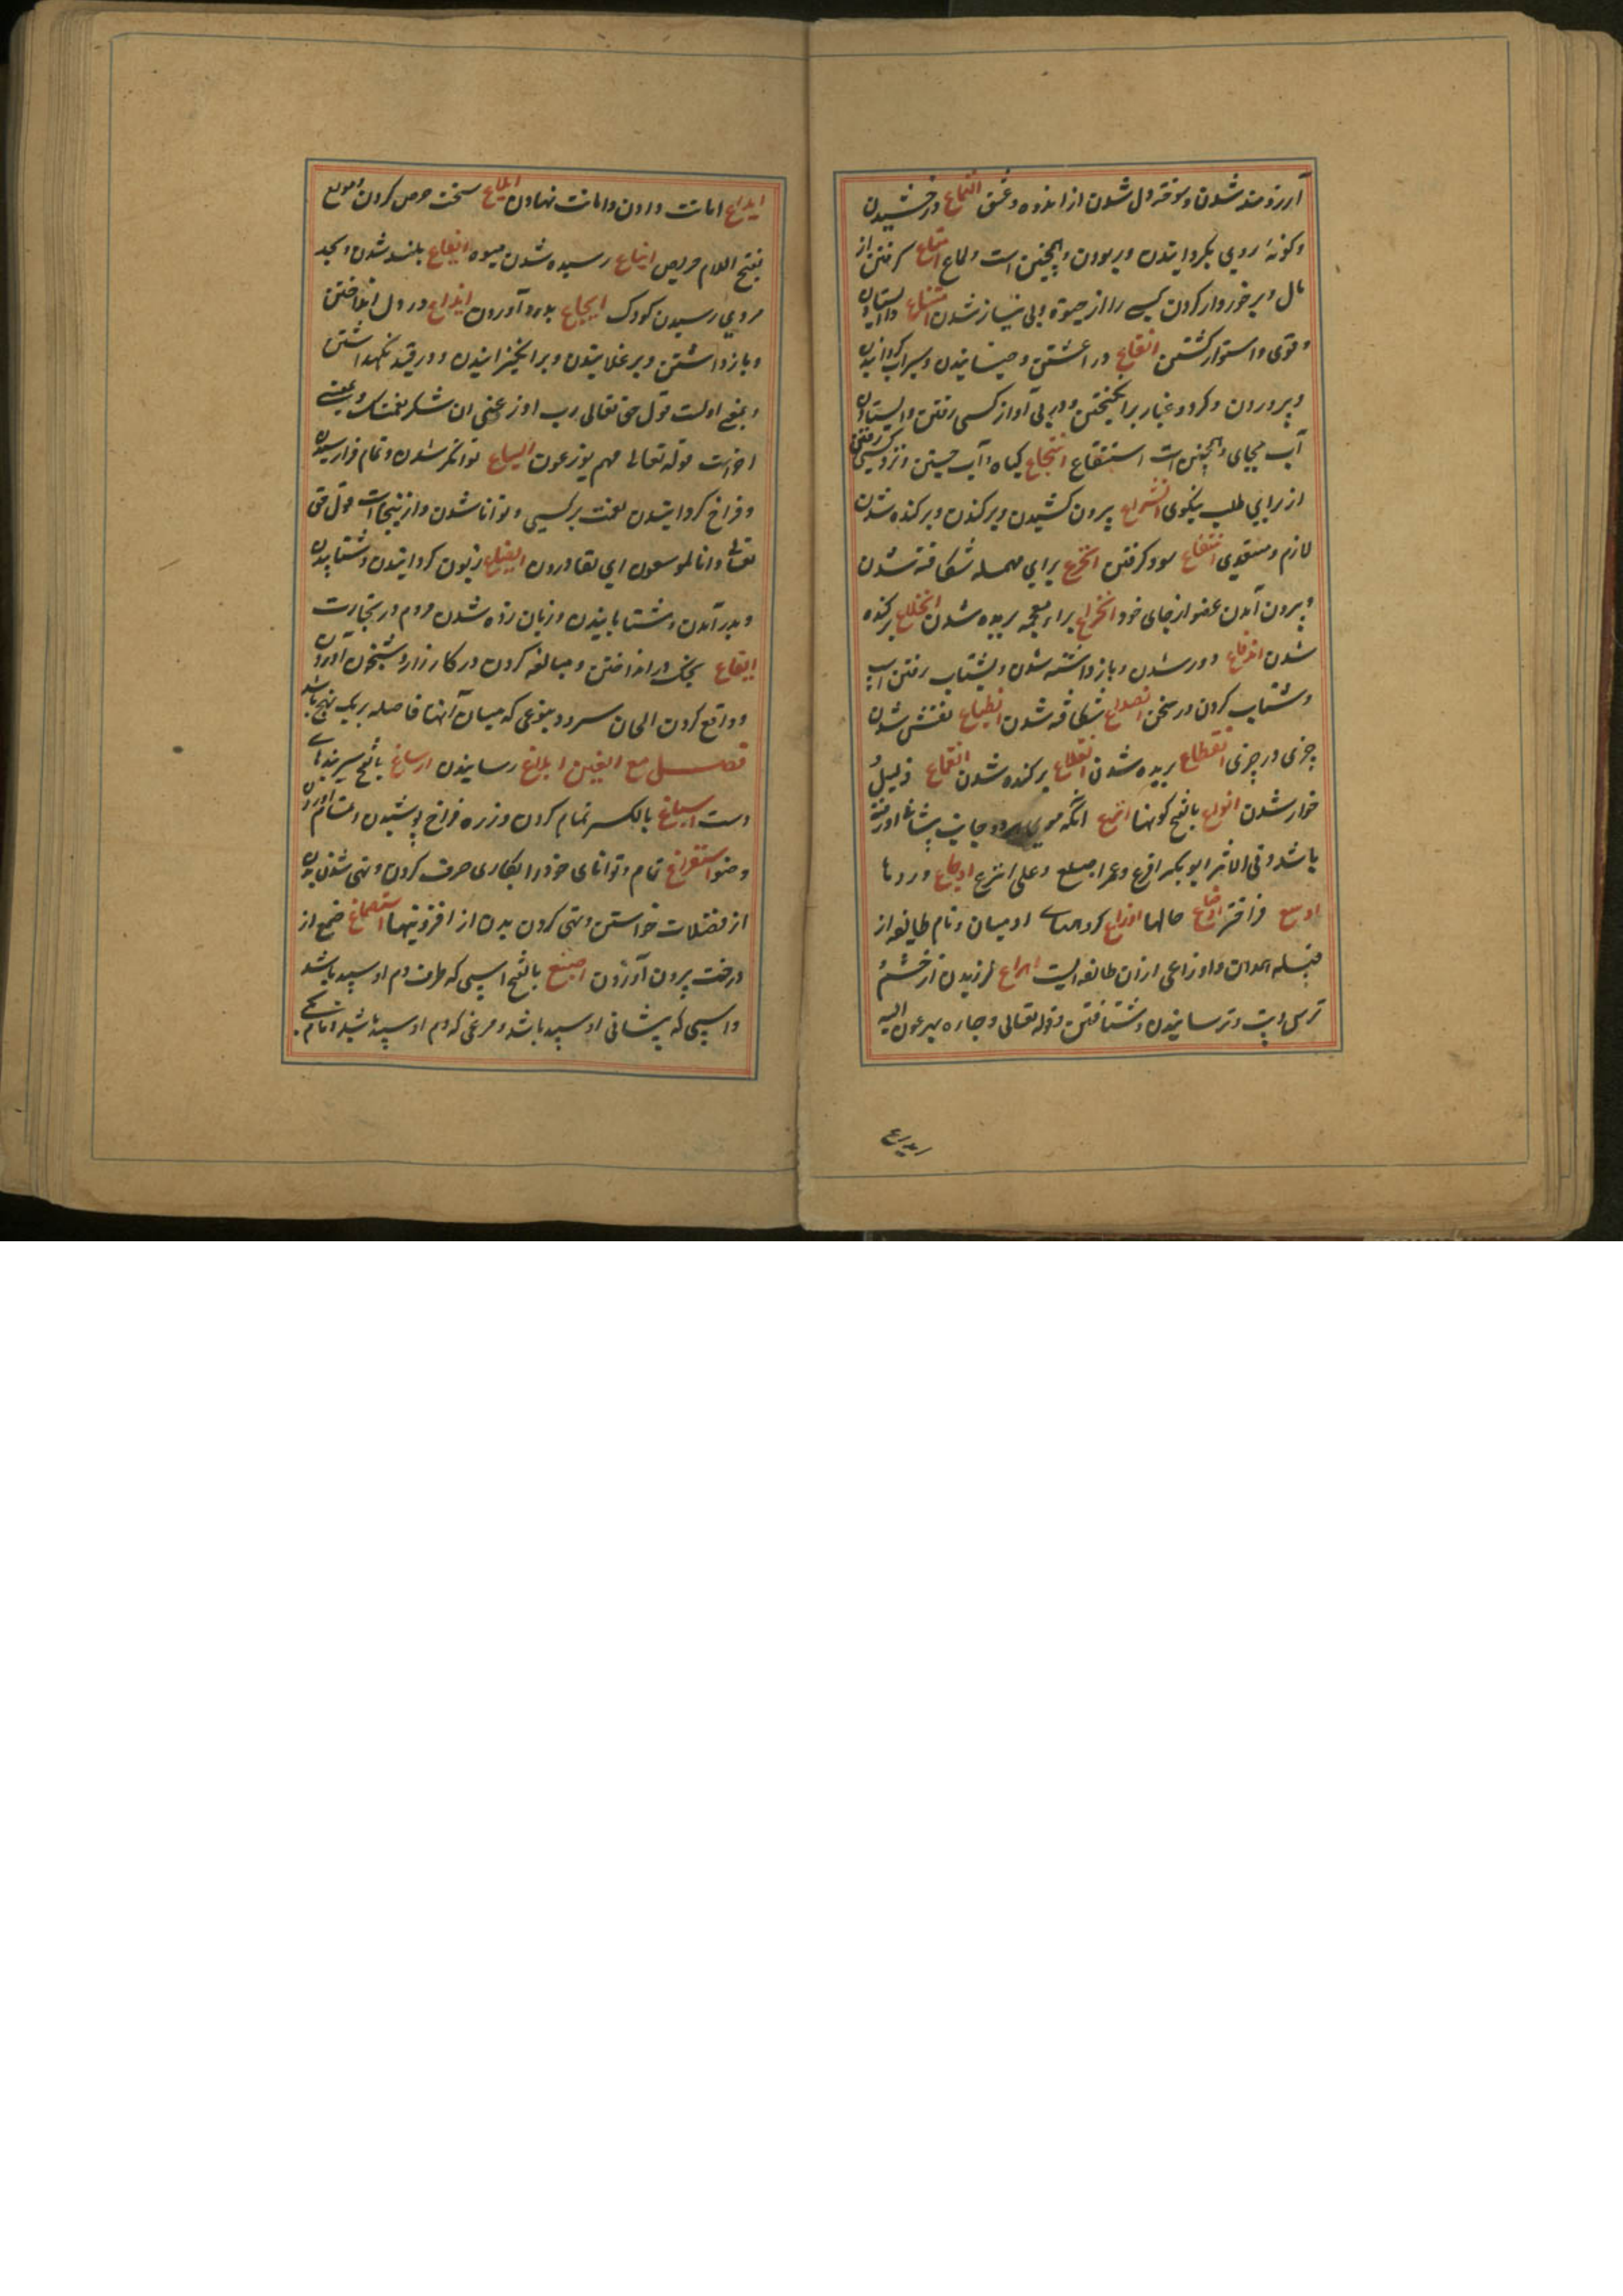 آرزومند شدن و سوخته دل شدن از اندوه و عشق التماع درخشیدن
و کونهٔ روی بکردانیدن و ربودن و همچنین است ولماع امتاع کرفتن از
مال و برخوردار کردن کسی را از حیوة و بی نیاز شدن امتناع واایستادن
و قوی و استوار کشتن انقاع در اغشتن و خیسانیدن و سیراب کردانیدن
و پروردن و کرد و غبار برانکیختن و در پی آواز کسی رفتن و ایستادن
آب بجای و همچنین است استنقاع انتجاع کیاه و آب جستن و نزد کسی رفتن
از برای طلب نیکوی انتزاع بیرون کشیدن و برکندن و برکنده شدن
لازم و متعدی انتفاع سود کرفتن انخرع برای مهمله شکافته شدن
و بیرون آمدن عضو از جای خود انخزاع براء معجمه بریده شدن انخلاع برکنده
شدن اندفاع دور شدن و بازداشته شدن و بشتاب رفتن اسب
و شتاب کردن در سخن انصداع شکافته شدن انطباع نقش شدن
چیزی در چیزی انقطاع بریده شدن انقلاع برکنده شدن انقماع ذلیل و
خوار شدن انواع بالفتح کونها انزع انکه موی هر دو جانب پیشانی او رفته
باشد و فی الاثر ابوبکر اقرع و عمر اصلع و علی انزع اوجاع دردها
اوسع فراختر اوضاع حالها اوزاع کروهها ادمیان و نام طایفه از
قبیله همدان و اوزاعی از ان طایفه است اهراع لرزیدن از خشم و
ترس و تب و ترسانیدن و شتافتن و قوله تعالی و جاره یهرعون الیه
ایداع امانت دادن و امانت نهادن ایلاع سخت حرص کردن و مولع
بفتح اللام حریص ایناع رسیده شدن میوه ایفاع بلند شدن و بحد
مردی رسیدن کودک ایجاع بدرد آوردن ایزاع در دل انداختن
و بازداشتن و برغلانیدن و برانکیزانیدن و در قید نکهداشتن
و بمعنی اولست قول حق تعالی رب اوزعنی ان اشکر نعمتک و بمعنی
اخر است قوله تعالی فهم یوزعون ایساع توانکر شدن و تمام فرا رسیدن
و فراخ کردانیدن نعمت بر کسی و توانا شدن و ازینجاست قول حق
تعالی و انا لموسعون ای لقادرون ایضاع زبون کردانیدن و شتابیدن
و بدر آمدن و شتابانیدن و زیان زده شدن مردم در تجارت
ایقاع بجنک در انداختن و مبالغه کردن در کارزار و شبیخون آوردن
و واقع کردن الحان سرود بنوعی که میان آنها فاصله بر یک نهج باشد
فصل مع الغین ابلاغ رسانیدن ارساغ بالفتح سربندهای
دست اسباغ بالکسر تمام کردن و زره فراخ پوشیدن و تمام آوردن
وضو استفراغ تمام و توانای خود را بکاری صرف کردن و تهی شدن بدن
از فضلات خواستن و تهی کردن بدن از افزونیها استصماغ صمغ از
درخت بیرون آوردن اصبغ بالفتح اسپی که طرف دم او سپید باشد
و اسپی که پیشانی او سپید باشد و مرغی که دم او سپید باشد و نام شخصی